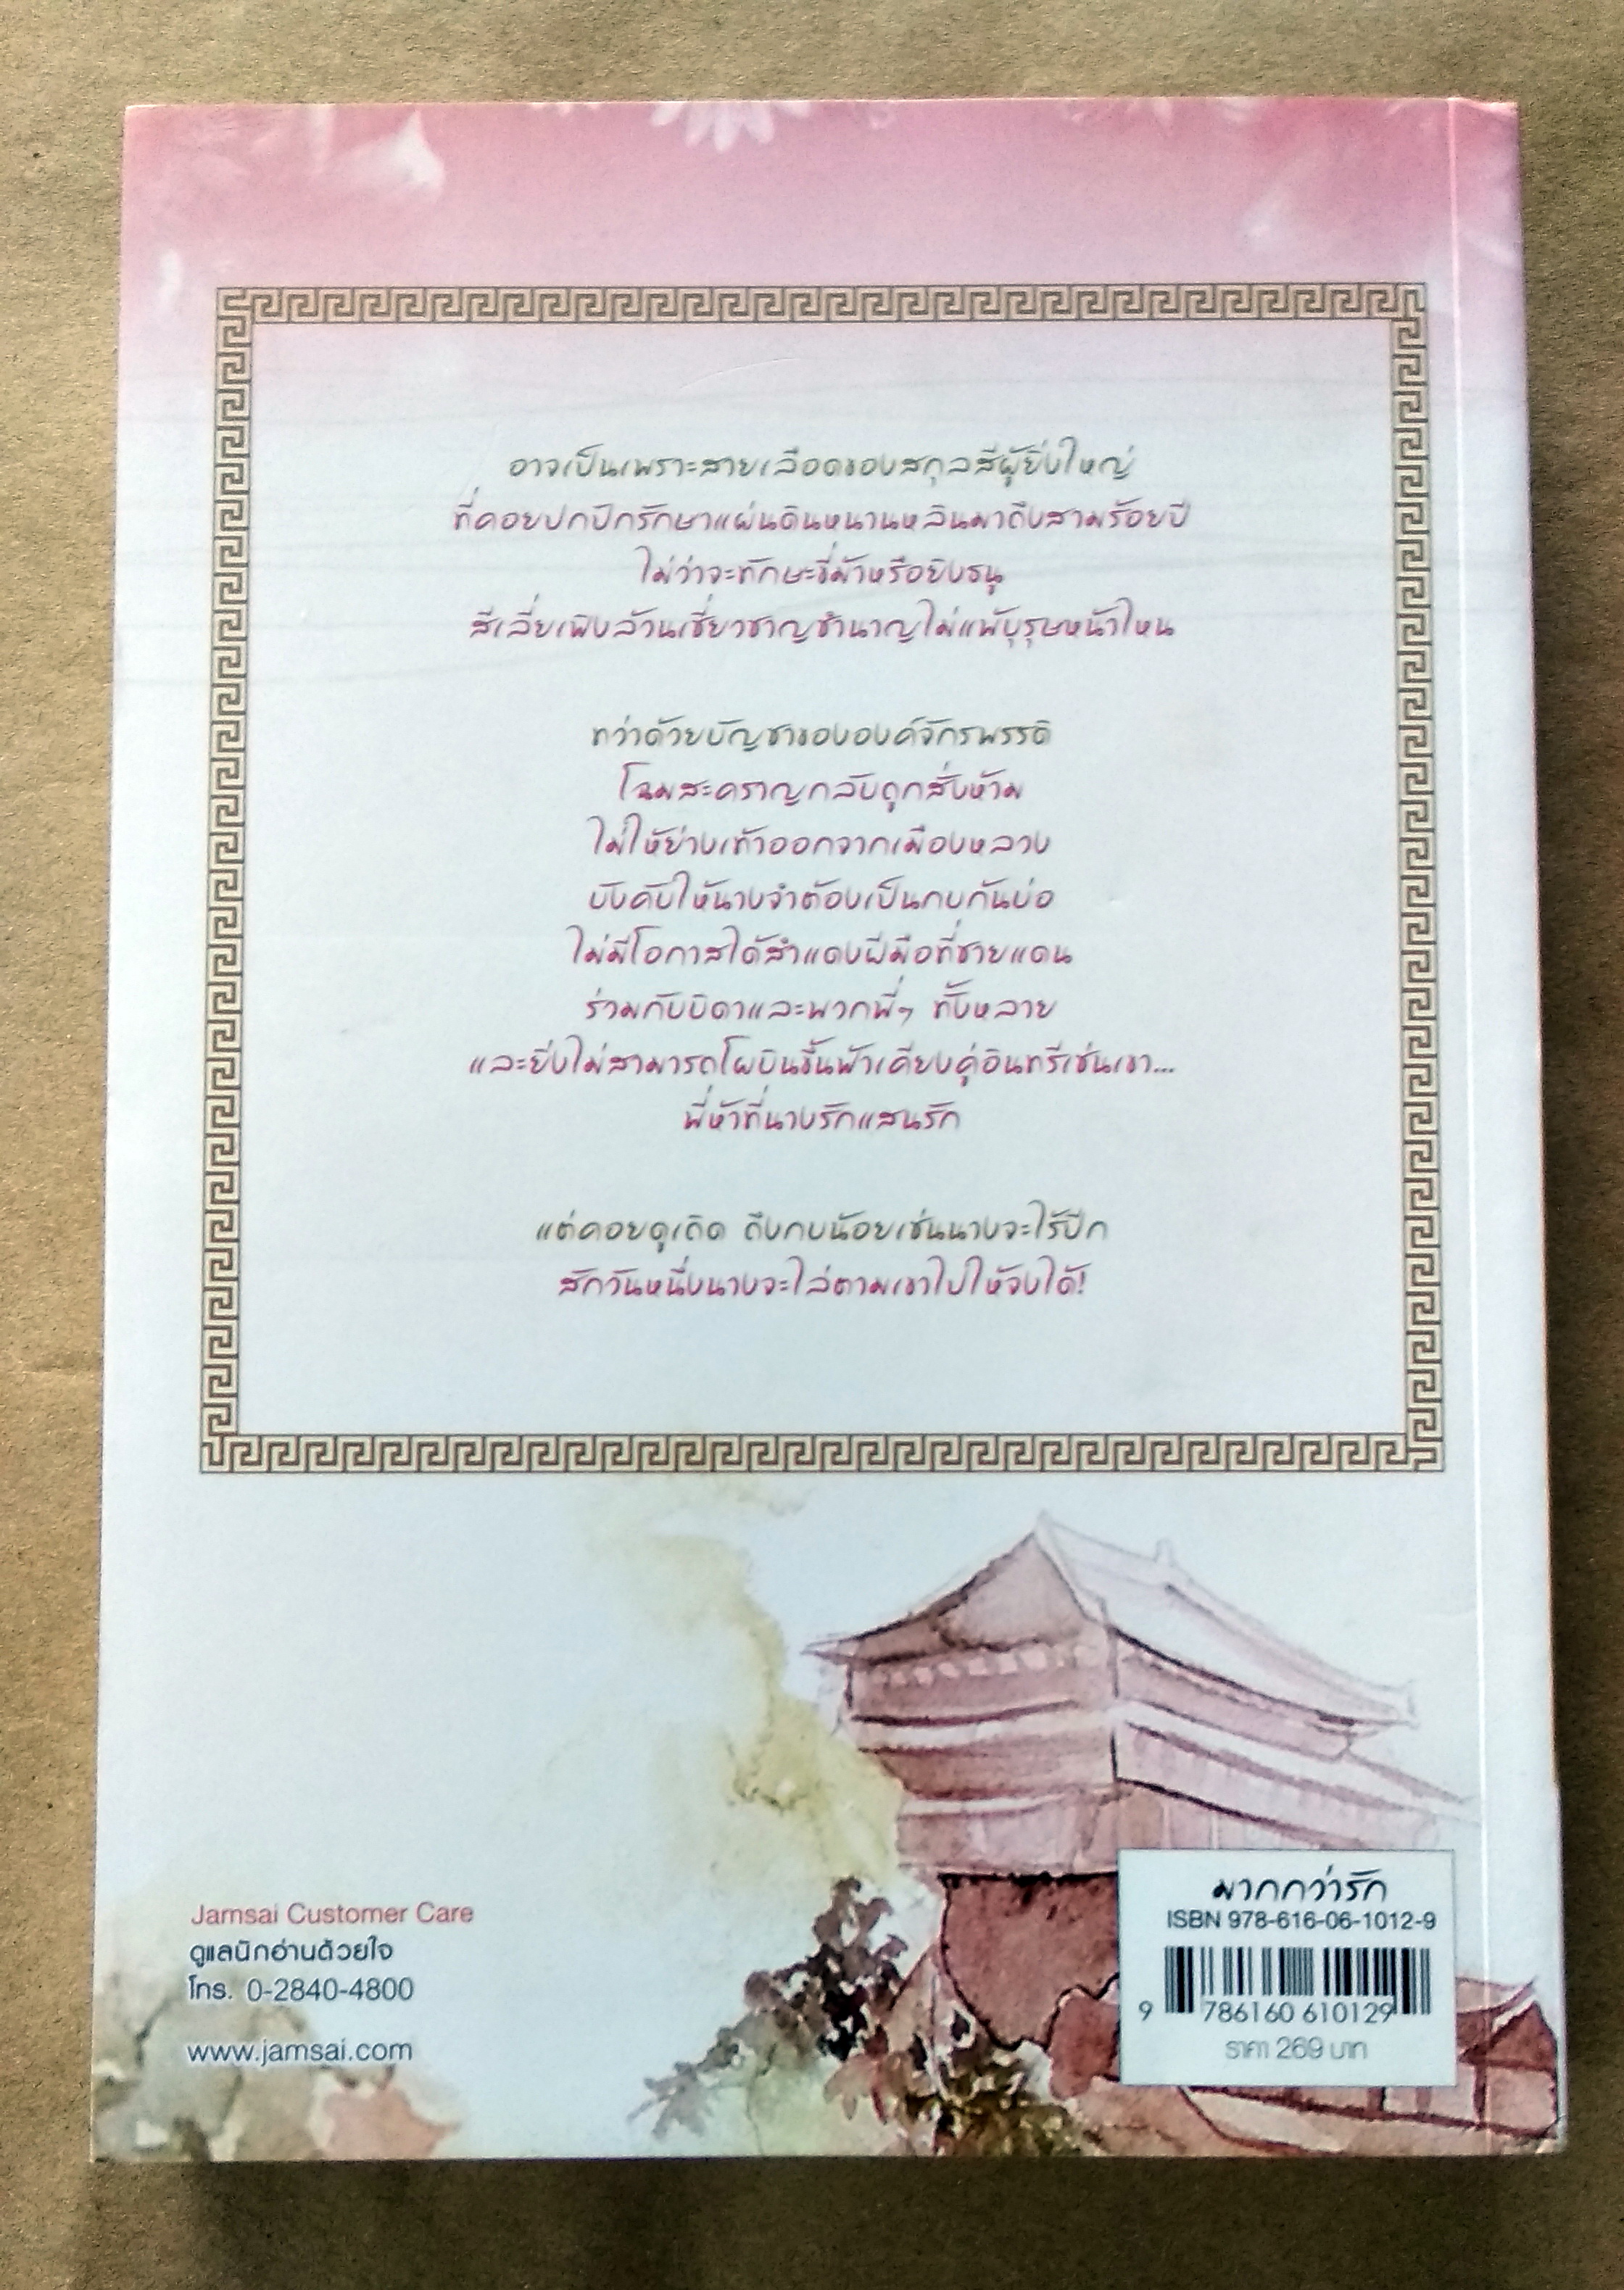 อาจเป็นเพราะสายเลือดของสกุลสีผู้ยิ่งใหญ่
ที่คอยปกปักรักษาแผ่นดินหนานหลินมาถึงสามร้อยปี
ไม่ว่าจะทักษะขี่ม้าหรือยิงธนู
สีเลี่ยเพิงล้วนเชี่ยวชาญชำนาญไม่แพ้บุรุษหน้าไหน
ทว่าด้วยบัญชาขององค์จักรพรรดิ
โฉมสะคราญกลับถูกสั่งห้าม
ไม่ให้ย่างเท้าออกจากเมืองหลวง
บังคับให้นางจำต้องเป็นกบก้นบ่อ
ไม่มีโอกาสได้สำแดงฝีมือที่ชายแดน
ร่วมกับบิดาและพวกพี่ๆ ทั้งหลาย
และยิ่งไม่สามารถโผบินขึ้นฟ้าเคียงคู่อินทรีเช่นเขา...
พี่ห้าที่นางรักแสนรัก
แต่คอยดูเถิด ถึงกบน้อยเช่นนางจะไร้ปีก
สักวันหนึ่งนางจะไล่ตามเขาไปให้จงได้!
Jamsai Customer Care
ดูแลนักอ่านด้วยใจ
โทร. 0-2840-4800
www.jamsai.com
มากกว่ารัก
ISBN 978-616-06-1012-9
9 786160 610129
ราคา 269 บาท